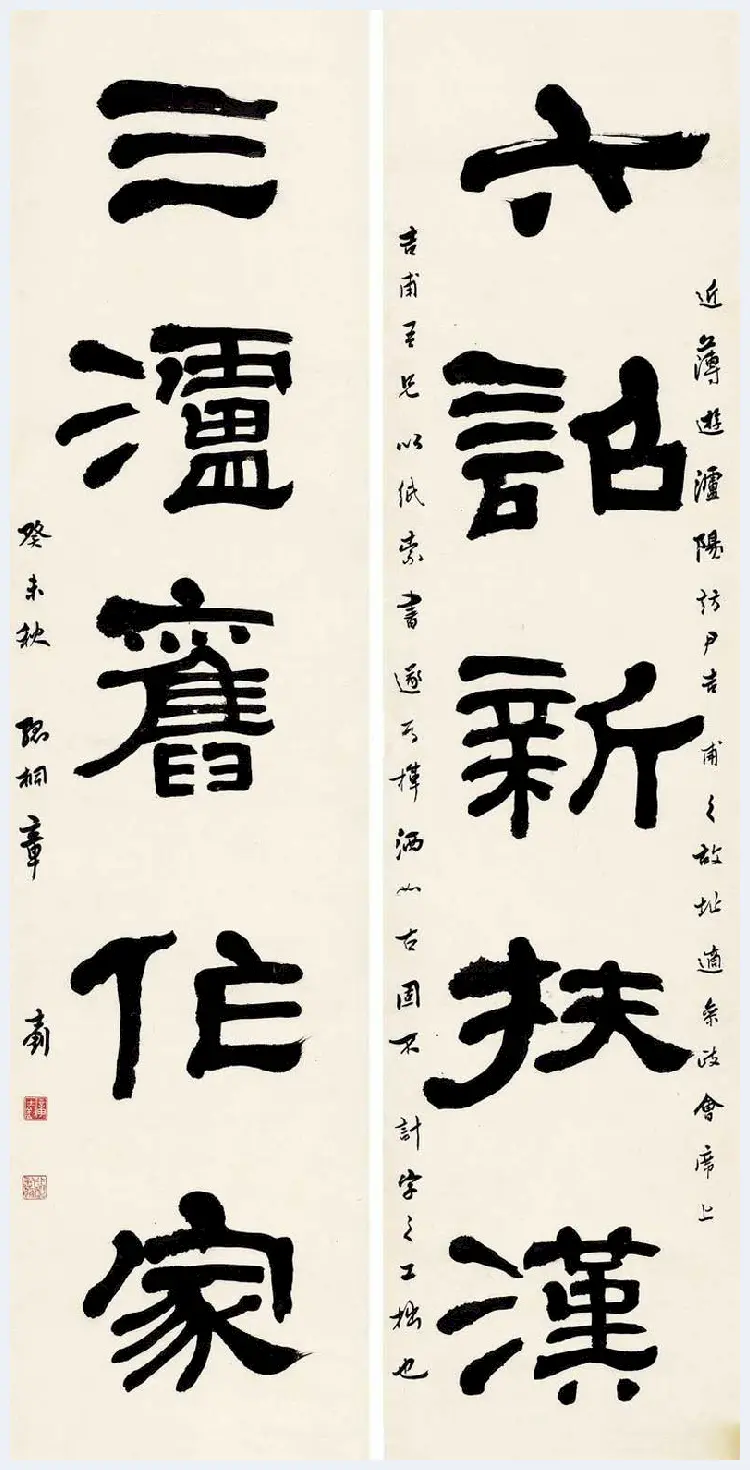 近薄遊瀘陽訪尹吉甫之故址適參政會席上
六詔新扶漢
吉甫吾兄以紙索書遂為揮洒如右固不計字之工拙也
三瀘舊作家
癸未秋 孤桐章士釗